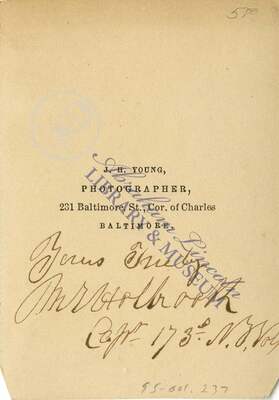 5 00
J. H. YOUNG,
PHOTOGRAPHER,
231 Baltimore St., Cor. of Charles
BALTIMORE.
Abraham Lincoln
LIBRARY & MUSEUM
Yours Truly
M R Holbrook
Capt. 173d. N.Y. Vols
95-001.237